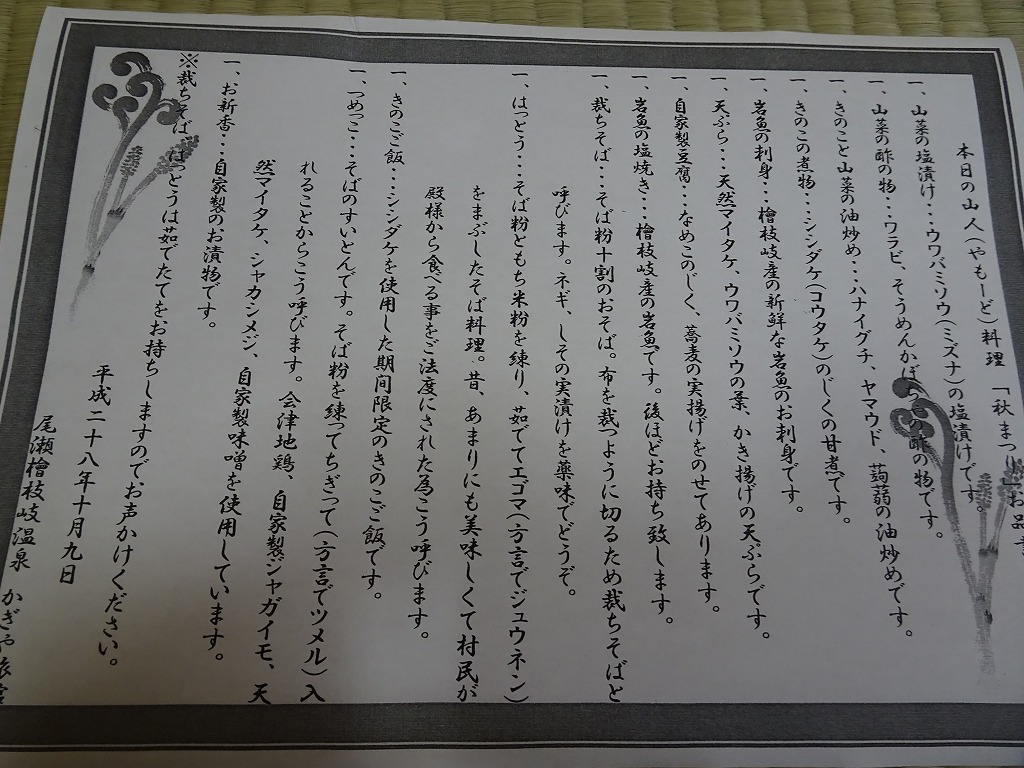 本日の山人(やもーど)料理 「秋まつり」お品
一、山菜の塩漬け・・・ウワバミソウ(ミズナ)の塩漬けです。
一、山菜の酢の物・・・ワラビ、そうめんかぼちゃの酢の物です。
一、きのこと山菜の油炒め・・・ハナイグチ、ヤマウド、蒟蒻の油炒めです。
一、きのこの煮物・・・シシダケ(コウタケ)のじくの甘煮です。
一、岩魚の刺身・・・檜枝岐産の新鮮な岩魚のお刺身です。
一、天ぷら・・・天然マイタケ、ウワバミソウの葉、かき揚げの天ぷらです。
一、自家製豆腐・・・なめこのじく、蕎麦の実揚げをのせてあります。
一、岩魚の塩焼き・・・檜枝岐産の岩魚です。後ほどお持ち致します。
一、裁ちそば・・・そば粉十割のおそば。布を裁つように切るため裁ちそばと
呼びます。ネギ、しその実漬けを薬味でどうぞ。
一、はっとう・・・そば粉ともち米粉を練り、茹でてエゴマ(方言でジュウネン)
をまぶしたそば料理。昔、あまりにも美味しくて村民が
殿様から食べる事をご法度にされた為こう呼びます。
一、きのこご飯・・・シシダケを使用した期間限定のきのこご飯です。
一、つめっこ・・・そばのすいとんです。そば粉を練ってちぎって(方言でツメル)入
れることからこう呼びます。会津地鶏、自家製ジャガイモ、天
然マイタケ、シャカシメジ、自家製味噌を使用しています。
一、お新香・・・自家製のお漬物です。
※裁ちそば はっとうは茹でたてをお持ちしますのでお声かけください。
平成二十八年十月九日
尾瀬檜枝岐温泉 かぎや旅館